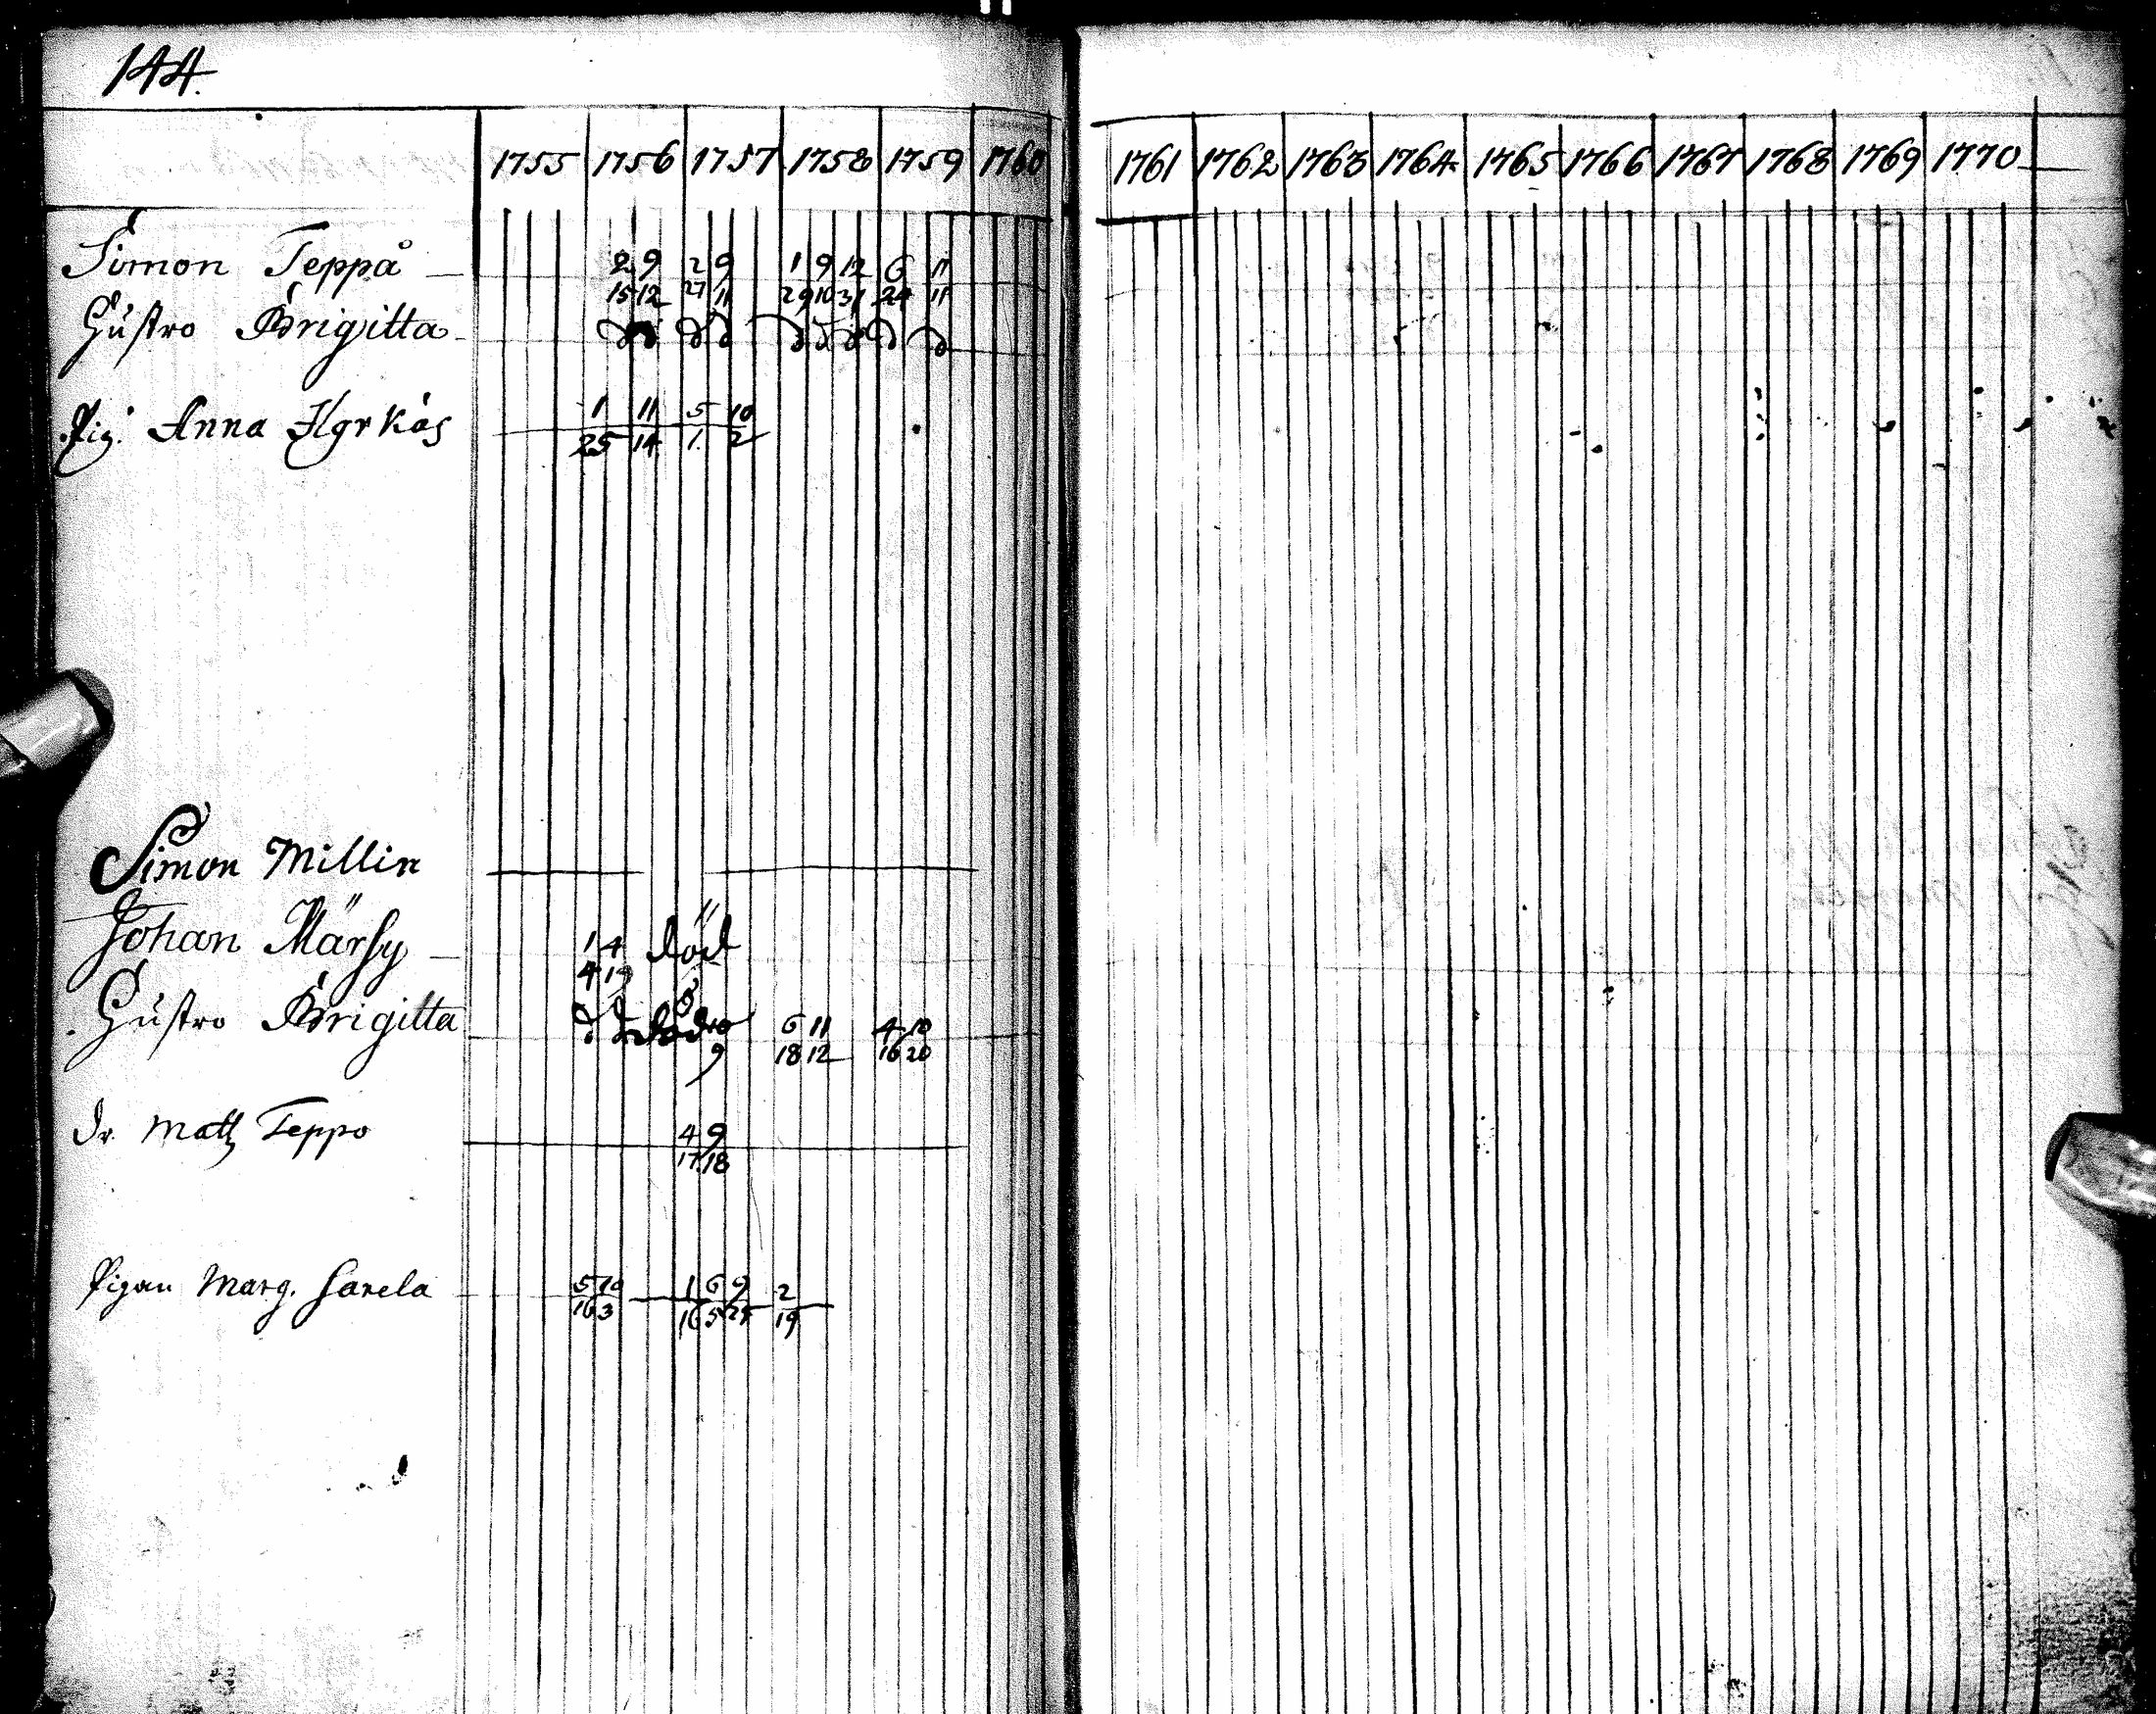 144.
1755 1756 1757 1758 1759 1760 1761 1762 1763 1764 1765 1766 1767 1768 1769 1770
Simon Teppå 2 9 2 9 1 9 12 6 11
15 12 27 11 29 10 31 24 11
Hustro Brigitta d d d d d d d d d
Pig. Anna 1 11 5 10
25 14 1 2
Simon Millin
Johan Märsy 1 4 död
4 19
Hustro Brigitta d d 10 6 11 4 10
9 18 12 16 20
Dr. Matts Teppo 4 9
17 18
Pigan Marg. Sarela 5 10 1 6 9 2
16 3 16 5 24 19